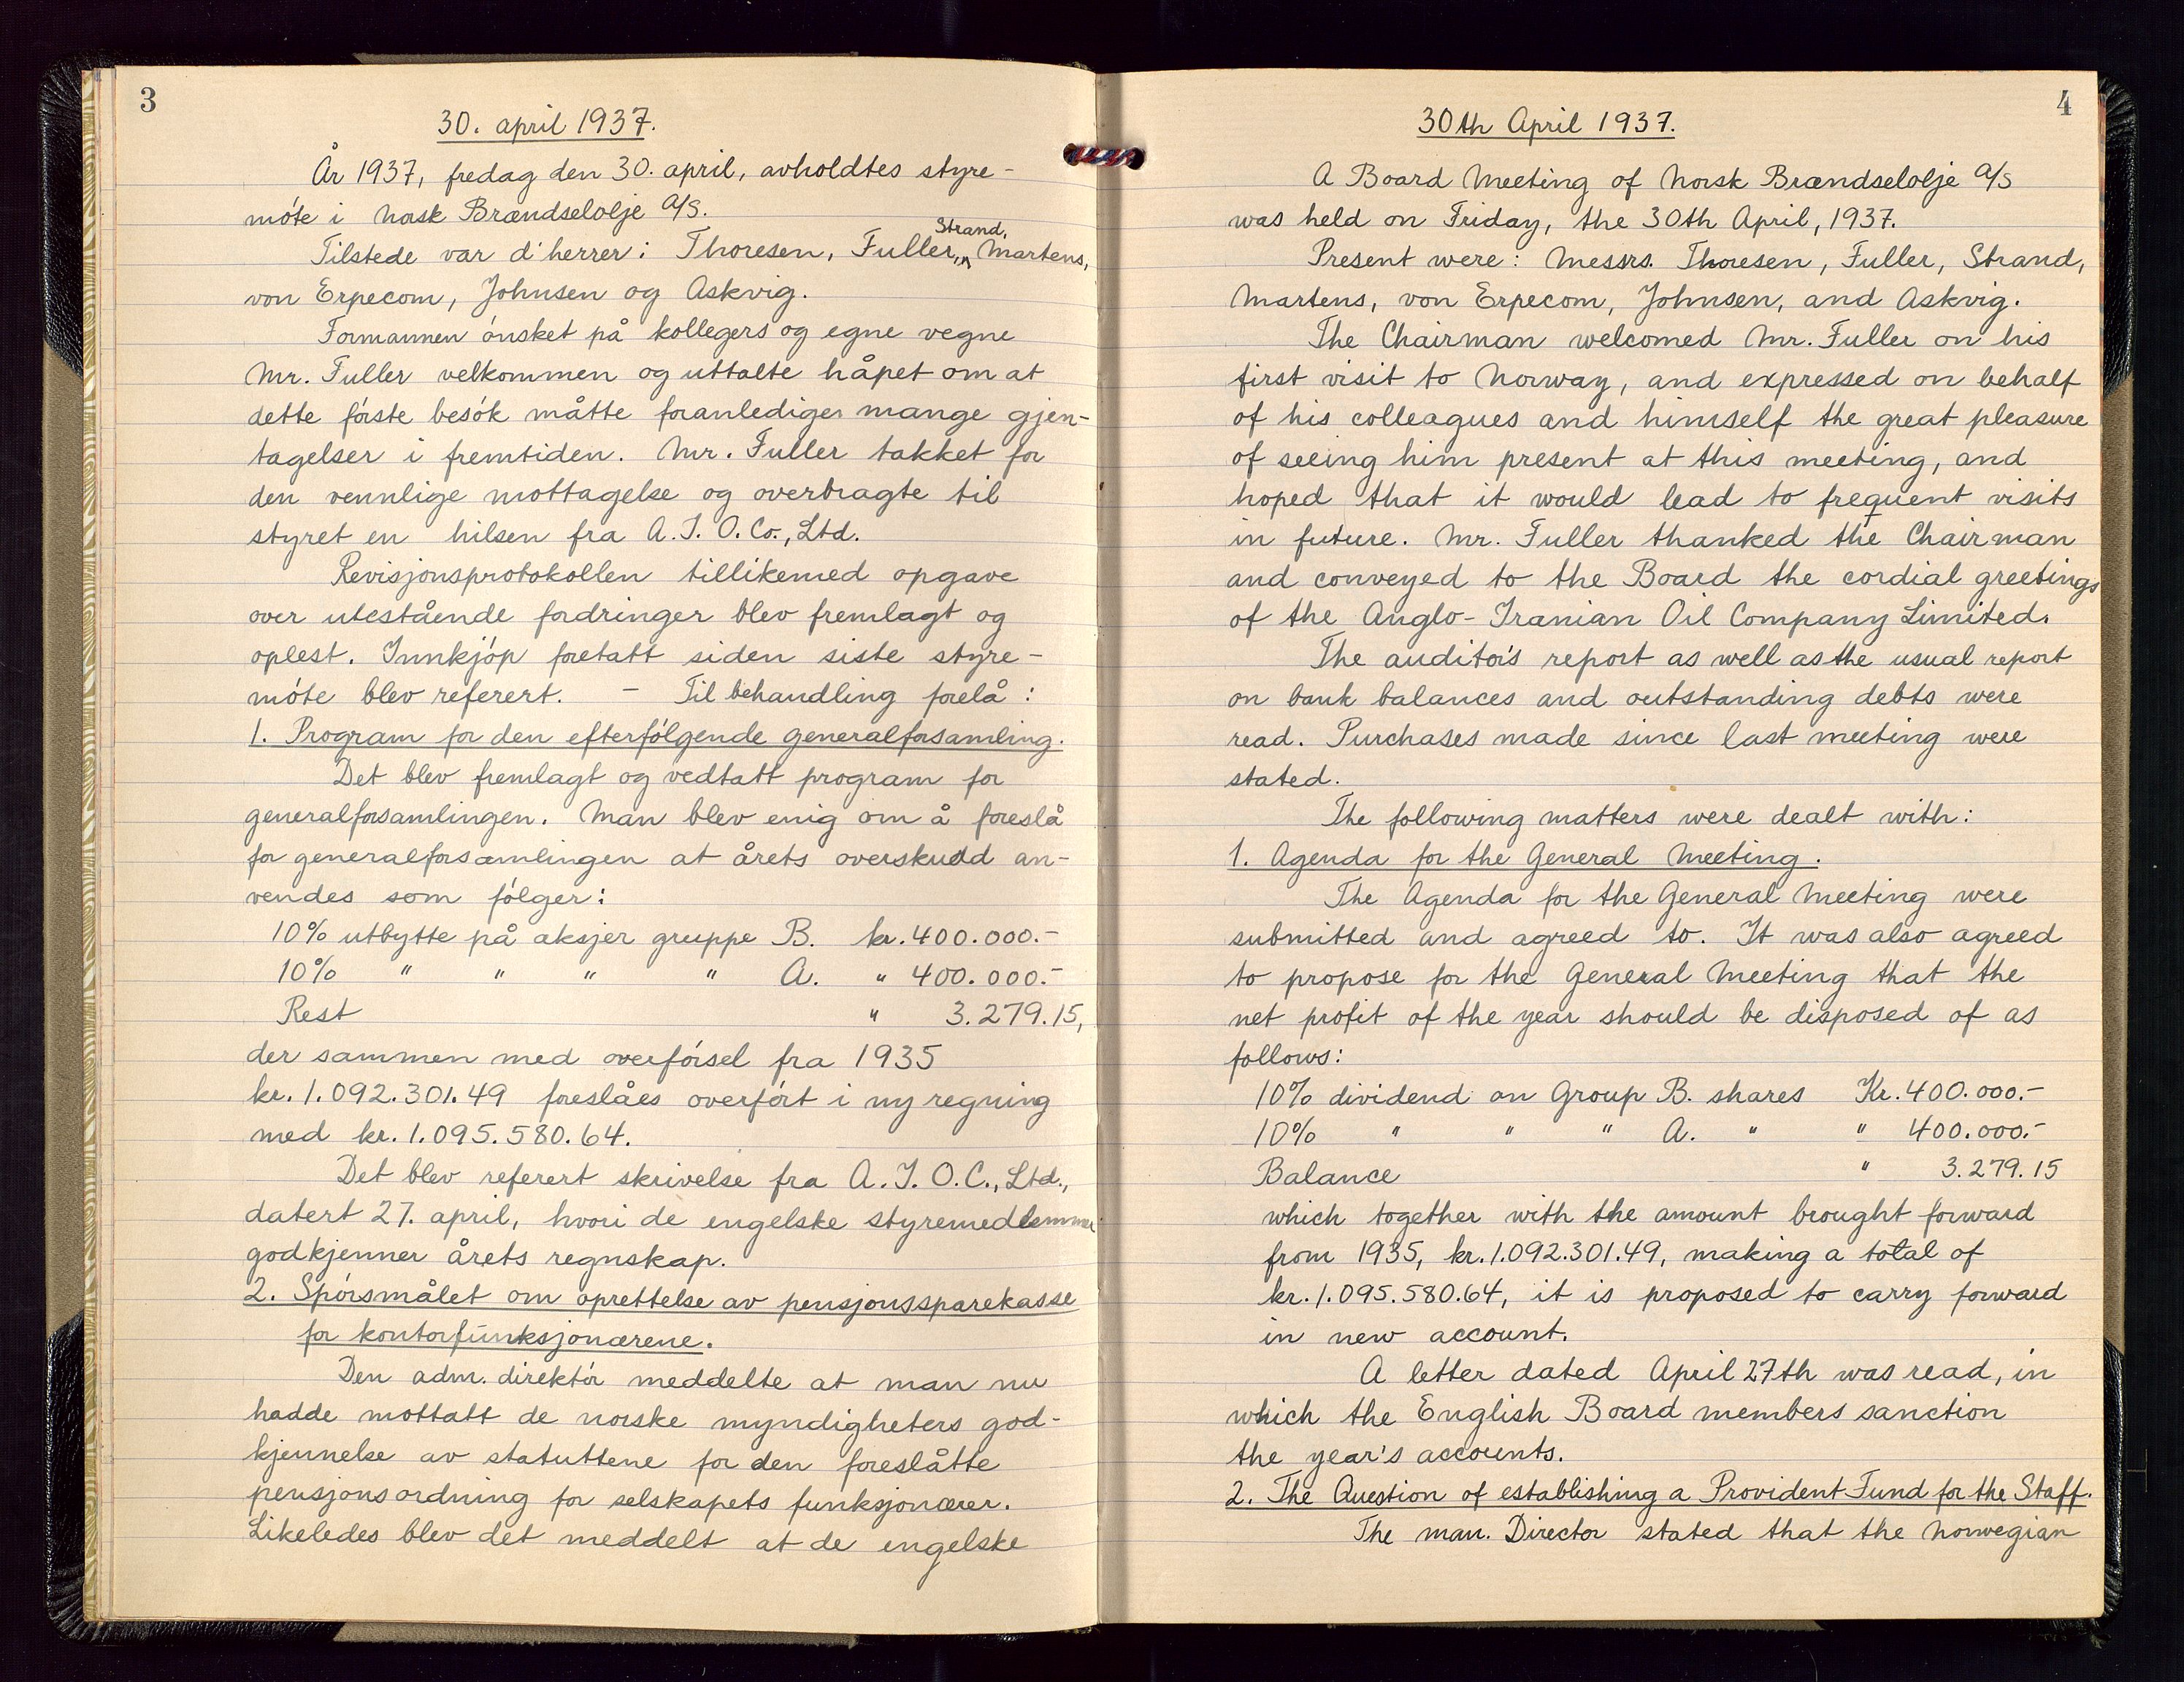 3
30. april 1937.
År 1937, fredag den 30. april, avholdtes styre-
møte i Norsk Brændselolje A/S.
Tilstede var d'herrer: Thoresen, Fuller, Strand, Martens,
von Erpecom, Johnsen og Askvig.
Formannen ønsket på kollegers og egne vegne
Mr. Fuller velkommen og uttalte håpet om at
dette første besøk måtte foranlediger mange gjen-
tagelser i fremtiden. Mr. Fuller takket for
den vennlige mottagelse og overbragte til
styret en hilsen fra A. I. O. Co., Ltd.
Revisjonsprotokollen tillikemed opgave
over utestående fordringer blev fremlagt og
oplest. Innkjøp foretatt siden siste styre-
møte blev referert. - Til behandling forelå:
1. Program for den efterfølgende generalforsamling.
Det blev fremlagt og vedtatt program for
generalforsamlingen. Man blev enig om å foreslå
for generalforsamlingen at årets overskudd an-
vendes som følger:
10% utbytte på aksjer gruppe B. kr. 400.000.-
10% " " " " A. " 400.000.-
Rest " 3.279.15,
der sammen med overførsel fra 1935
kr. 1.092.301.49 foreslåes overført i ny regning
med kr. 1.095.580.64.
Det blev referert skrivelse fra A. I. O. C., Ltd.,
datert 27. april, hvori de engelske styremedlemmer
godkjenner årets regnskap.
2. Spørsmålet om oprettelse av pensjonssparekasse
for kontorfunksjonærene.
Den adm. direktør meddelte at man nu
hadde mottatt de norske myndigheters god-
kjennelse av statuttene for den foreslåtte
pensjonsordning for selskapets funksjonærer.
Likeledes blev det meddelt at de engelske
4
30th April 1937.
A Board Meeting of Norsk Brændselolje A/S
was held on Friday, the 30th April, 1937.
Present were: Messrs. Thoresen, Fuller, Strand,
Martens, von Erpecom, Johnsen, and Askvig.
The Chairman welcomed Mr. Fuller on his
first visit to Norway, and expressed on behalf
of his colleagues and himself the great pleasure
of seeing him present at this meeting, and
hoped that it would lead to frequent visits
in future. Mr. Fuller thanked the Chairman
and conveyed to the Board the cordial greetings
of the Anglo-Iranian Oil Company Limited.
The auditor's report as well as the usual report
on bank balances and outstanding debts were
read. Purchases made since last meeting were
stated.
The following matters were dealt with:
1. Agenda for the General Meeting.
The Agenda for the General Meeting were
submitted and agreed to. It was also agreed
to propose for the General Meeting that the
net profit of the year should be disposed of as
follows:
10% dividend on Group B. shares Kr. 400.000.-
10% " " " A. " " 400.000.-
Balance " 3.279.15
which together with the amount brought forward
from 1935, kr. 1.092.301.49, making a total of
kr. 1.095.580.64, it is proposed to carry forward
in new account.
A letter dated April 27th was read, in
which the English Board members sanction
the year's accounts.
2. The Question of establishing a Provident Fund for the Staff.
The man. Director stated that the Norwegian